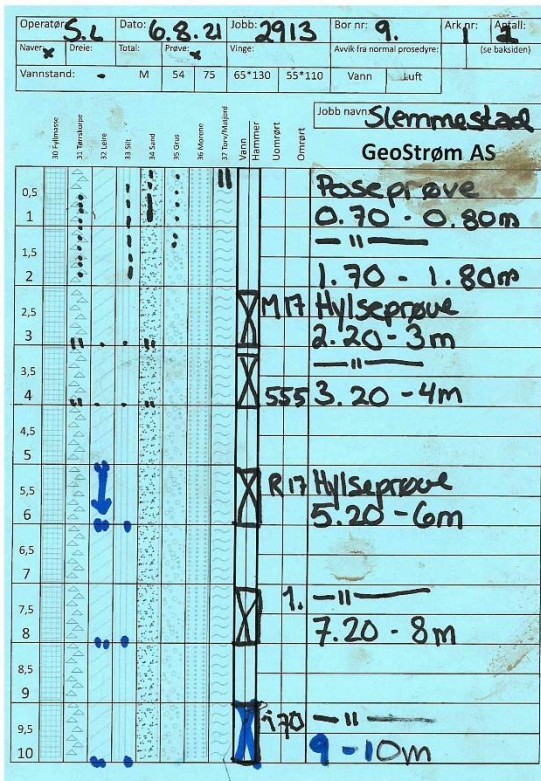 Operatør: S.L Dato: 6.8.21 Jobb: 2913 Bor nr: 9. Ark nr: 1 Antall: 1
Naver: x Dreie: Total: Prøve: x Vinge: Avvik fra normal prosedyre: (se baksiden)
Vannstand: - M 54 75 65*130 55*110 Vann Luft
Jobb navn: Slemmestad
GeoStrøm AS
30 Fyllmasse
31 Tørrskorpe
32 Leire
33 Silt
34 Sand
35 Grus
36 Morene
37 Torv/Matjord
Vann
Hammer
Uomrørt
Omrørt
Poseprøve
0,5
1 0.70 - 0.80m
1,5 — " —
2 1.70 - 1.80m
2,5 M17 Hylseprøve
3 " " 2.20 - 3m
3,5 — " —
4 " " 555 3.20 - 4m
4,5
5
5,5 R17 Hylseprøve
6 5.20 - 6m
6,5
7
7,5 1. — " —
8 7.20 - 8m
8,5
9
9,5 i70 — " —
10 9 - 10m